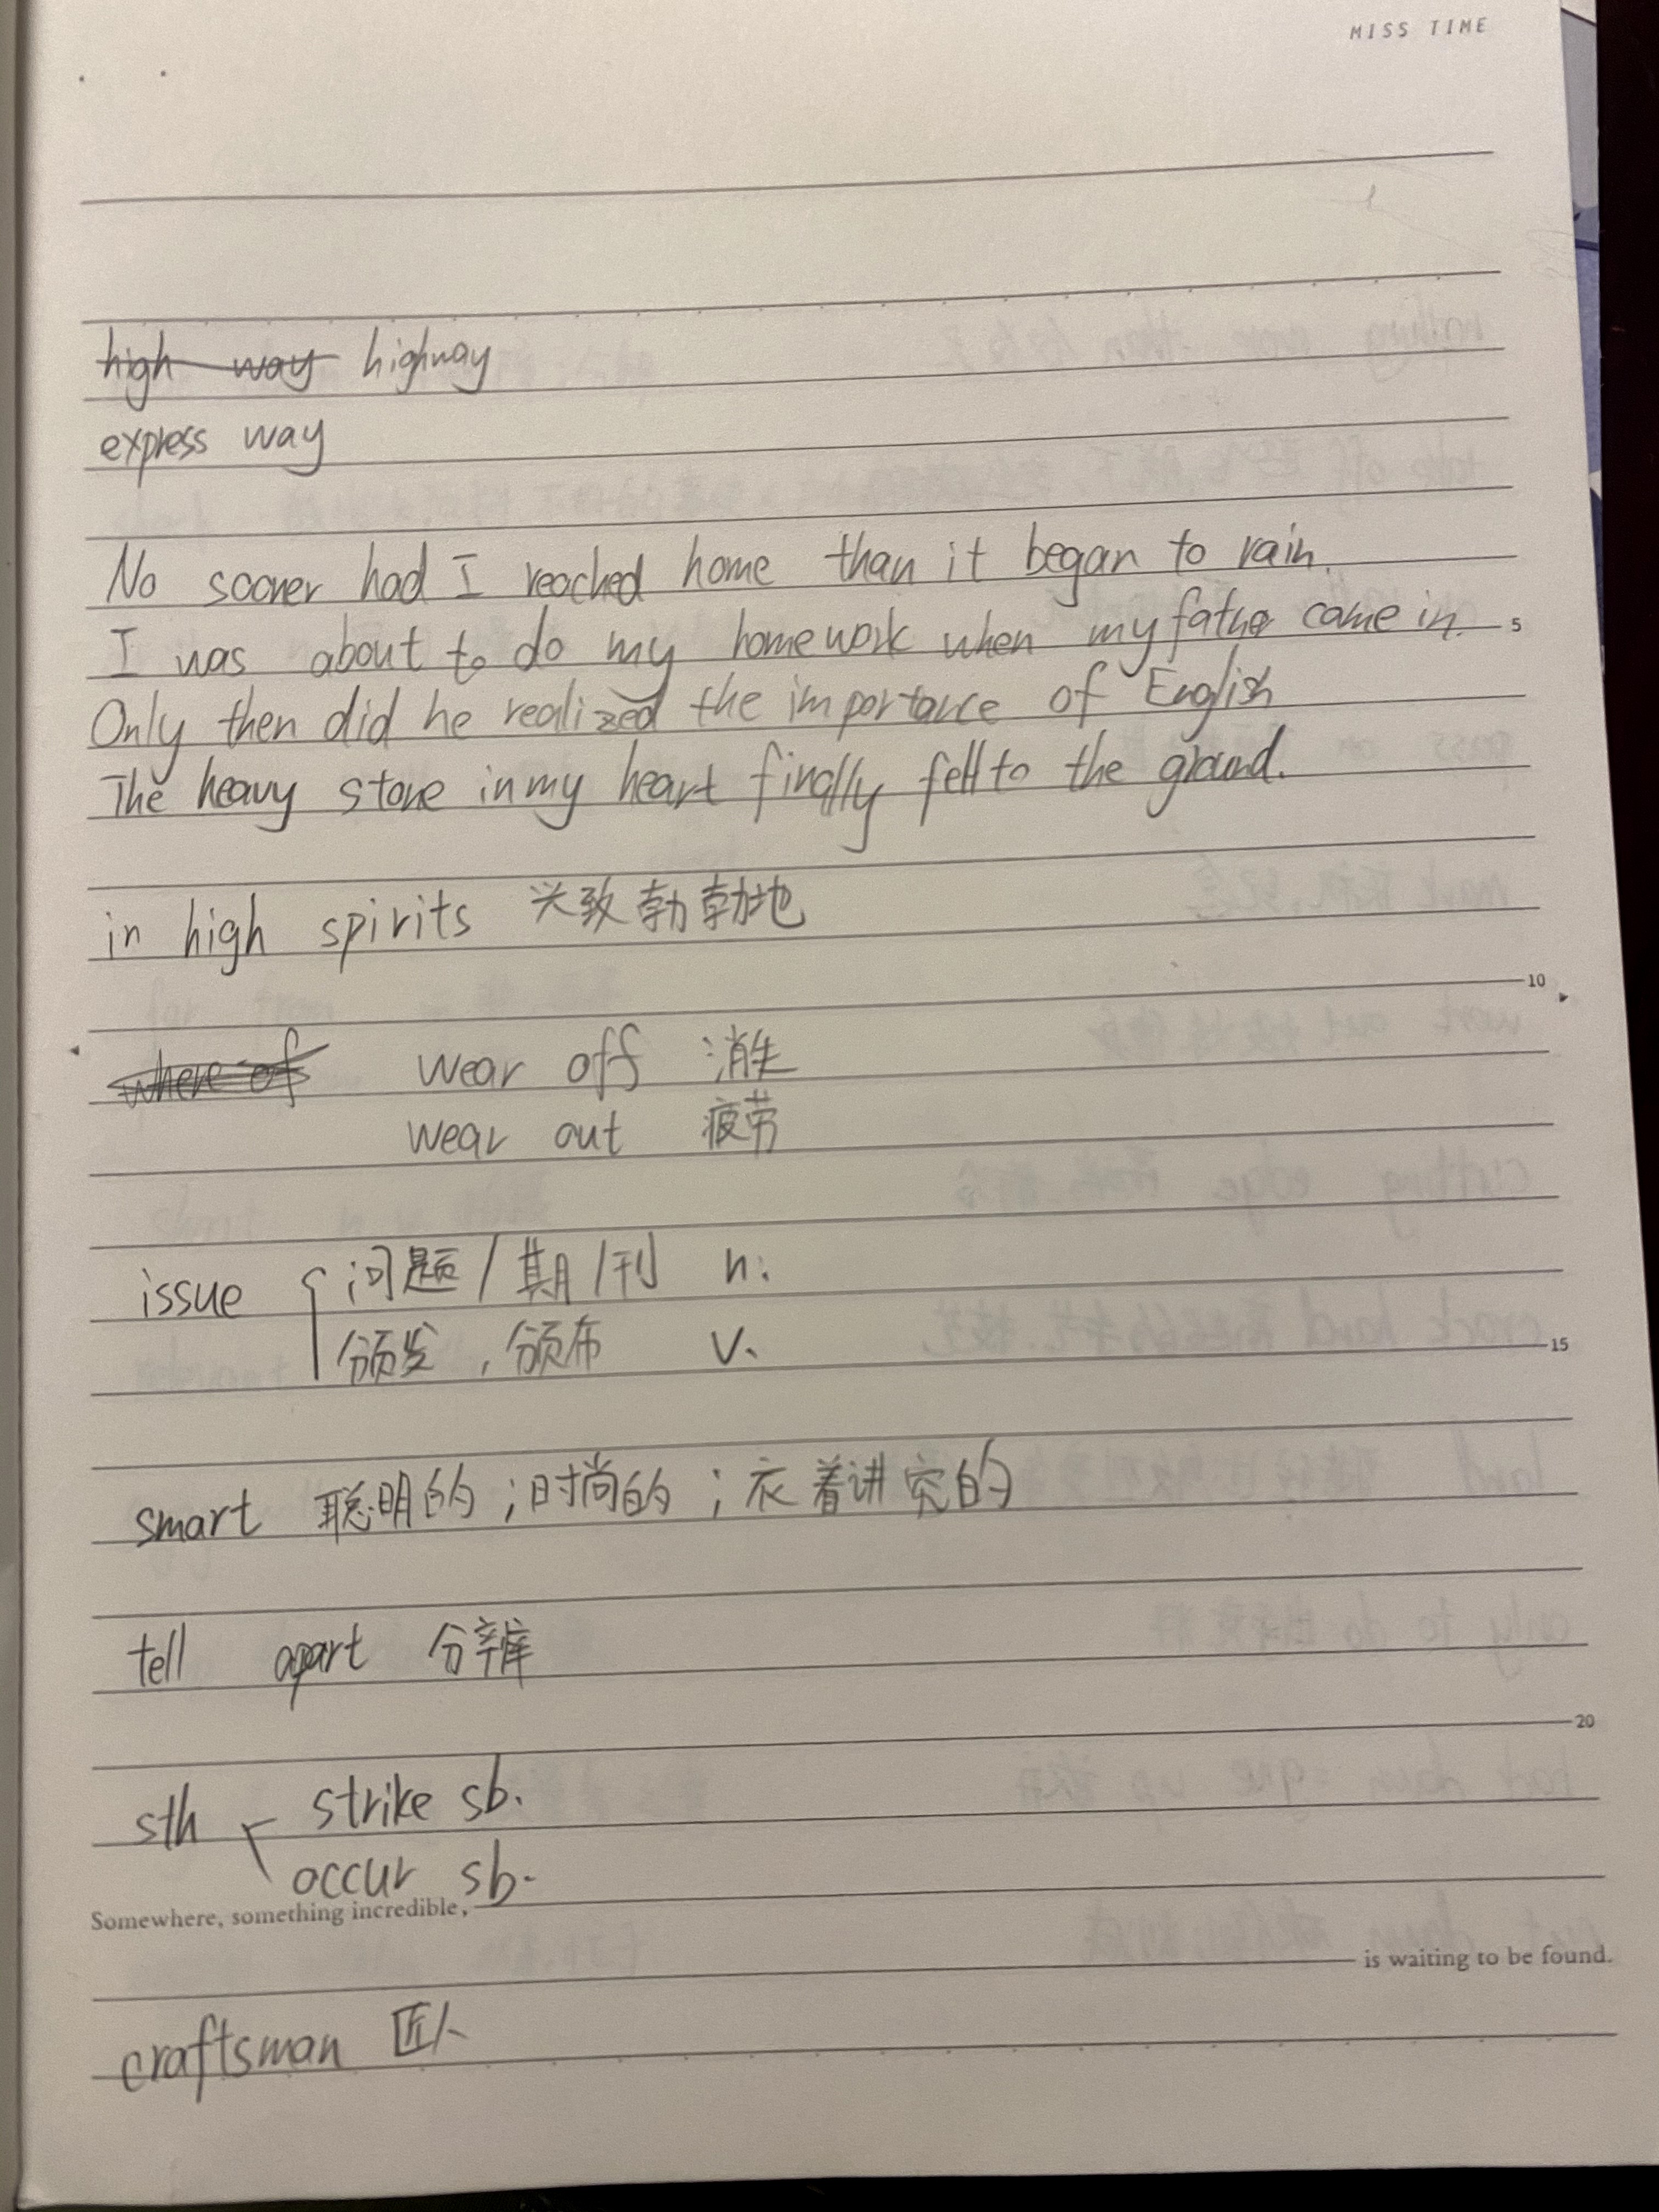 MISS TIME
high way highway
express way
No sooner had I reached home than it began to rain.
I was about to do my homework when my father came in.
5
Only then did he realized the importance of English
The heavy stone in my heart finally fell to the ground.
in high spirits 兴致勃勃地
10
wear off 消失
wear out 疲劳
issue 问题/期刊 n.
颁发,颁布 v.
15
smart 聪明的;时尚的;衣着讲究的
tell apart 分辨
20
sth strike sb.
occur sb.
Somewhere, something incredible, is waiting to be found.
craftsman 匠人